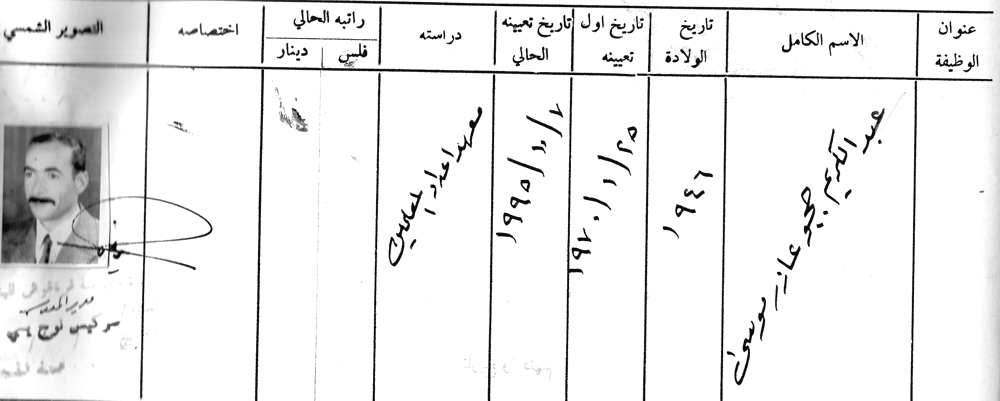 عنوان الوظيفة
الاسم الكامل
تاريخ الولادة
تاريخ اول تعيينه
تاريخ تعيينه الحالي
دراسته
راتبه الحالي
فلس
دينار
اختصاصه
التصوير الشمسي
عبد الكريم ججو عازر موسى
١٩٤٦
١٩٧٠/١/٢٥
١٩٩٥/١٠/٧
معهد اعداد المعلمين
مدير المدرسة
سركيس